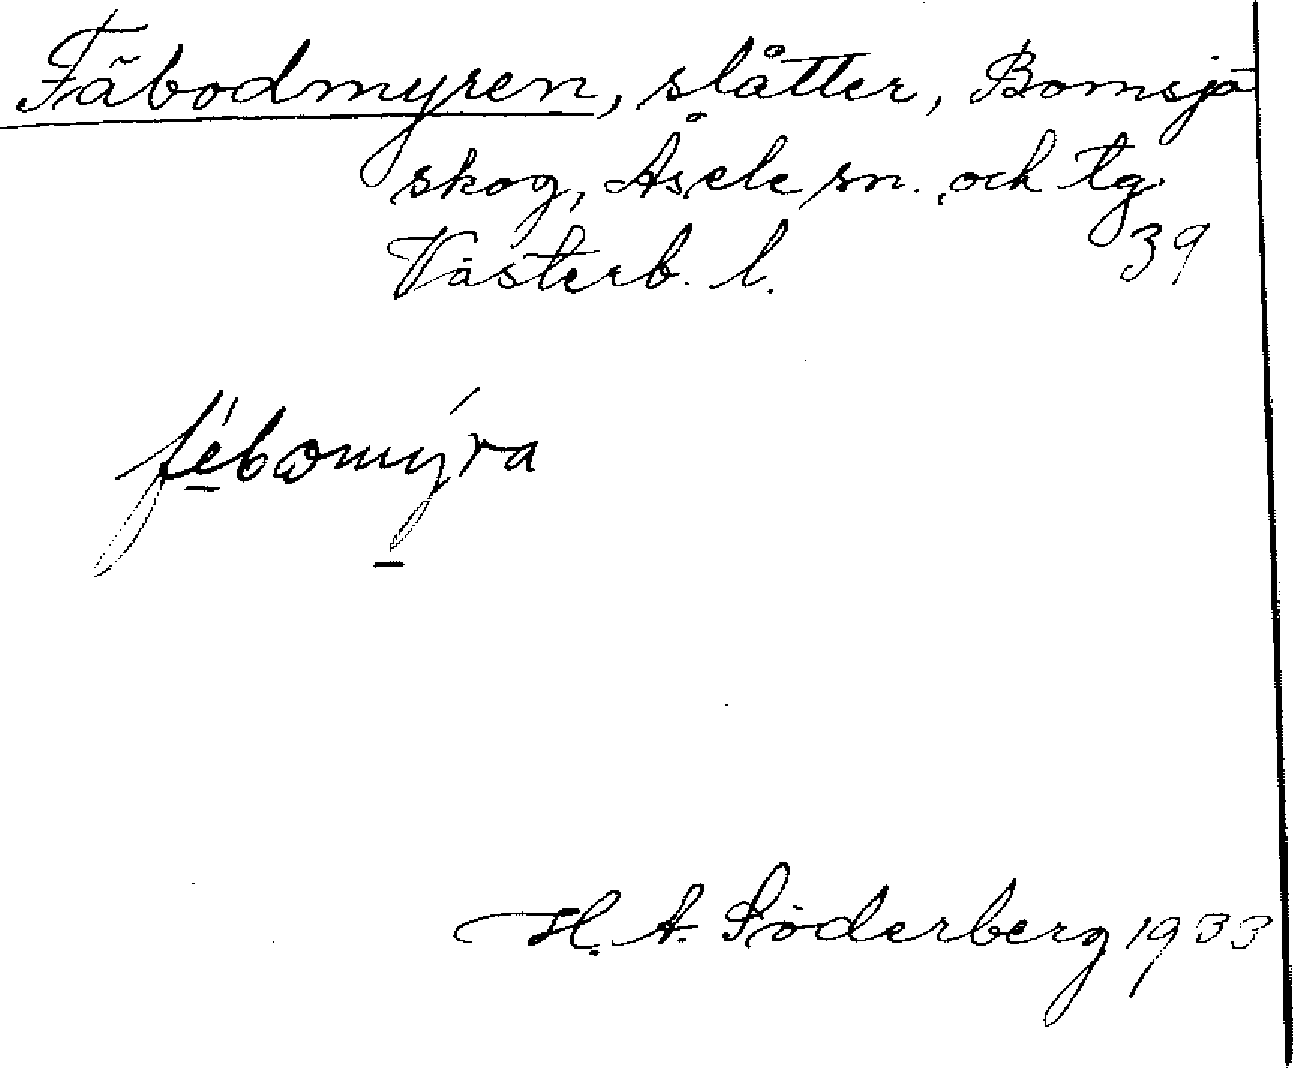 Fäbodmyren, slåtter, Bomsjö
skog, Åsele sn. och tg
Västerb. l. 39
fébωmýra
H. A. Söderberg 1933